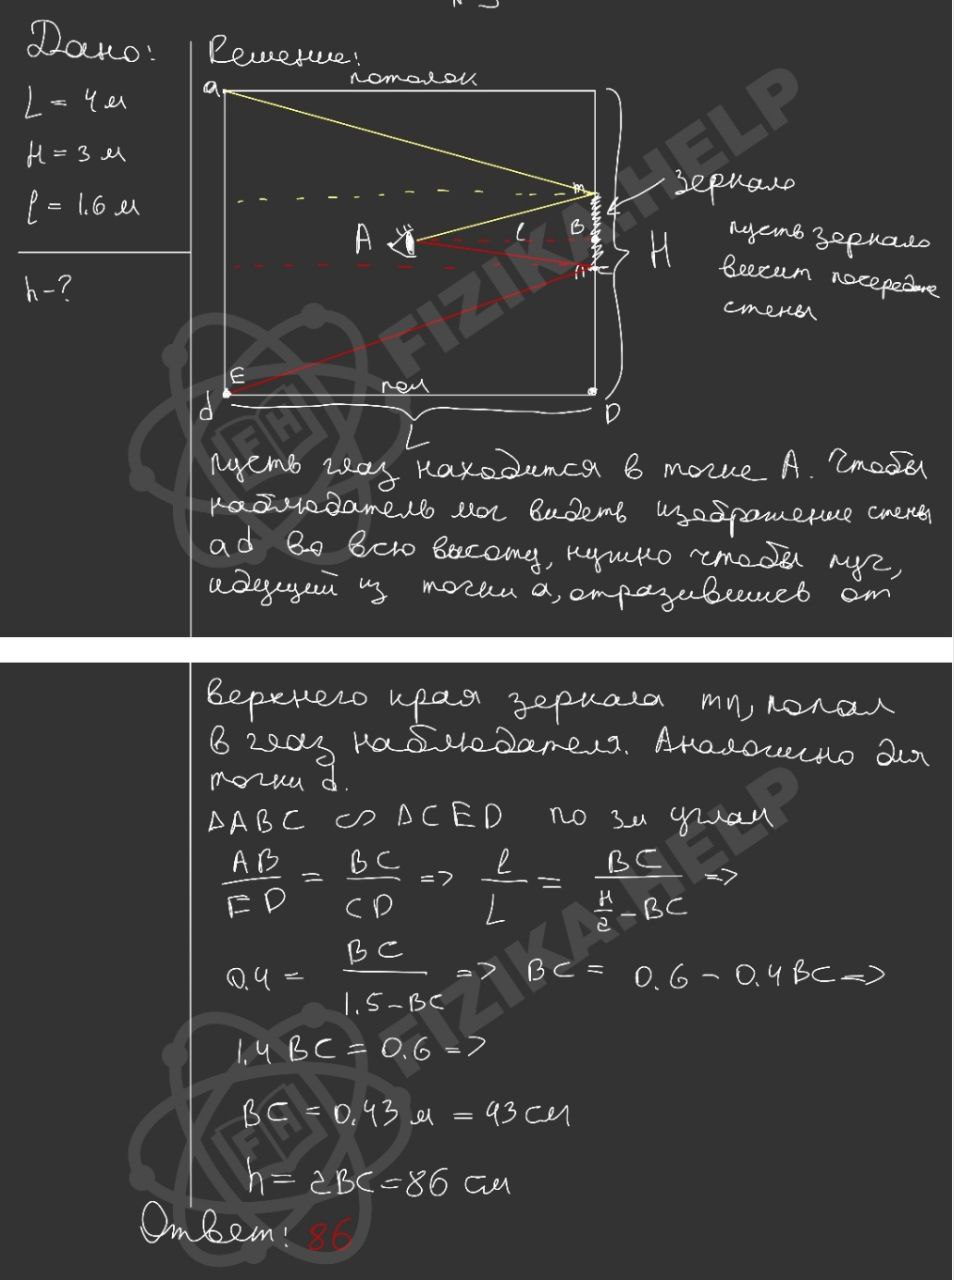 Дано:
L = 4 м
H = 3 м
l = 1.6 м
h-?
Решение:
потолок
a
m
A
l
B
зеркало
H
пусть зеркало
висит посередине
стены
E
d
пол
D
L
пусть глаз находится в точке A. Чтобы
наблюдатель мог видеть изображение стены
ad во всю высоту, нужно чтобы луч,
идущий из точки a, отразившись от
верхнего края зеркала mn, попал
в глаз наблюдателя. Аналогично для
точки d.
ΔABC ∽ ΔCED по 3м углам
AB/ED = BC/CD => l/L = BC/(H/2 - BC) =>
0.4 = BC/(1.5-BC) => BC = 0.6 - 0.4BC =>
1.4 BC = 0.6 =>
BC = 0.43 м = 43 см
h = 2BC = 86 см
Ответ: 86
FIZIKA.HELP
FIZIKA.HELP